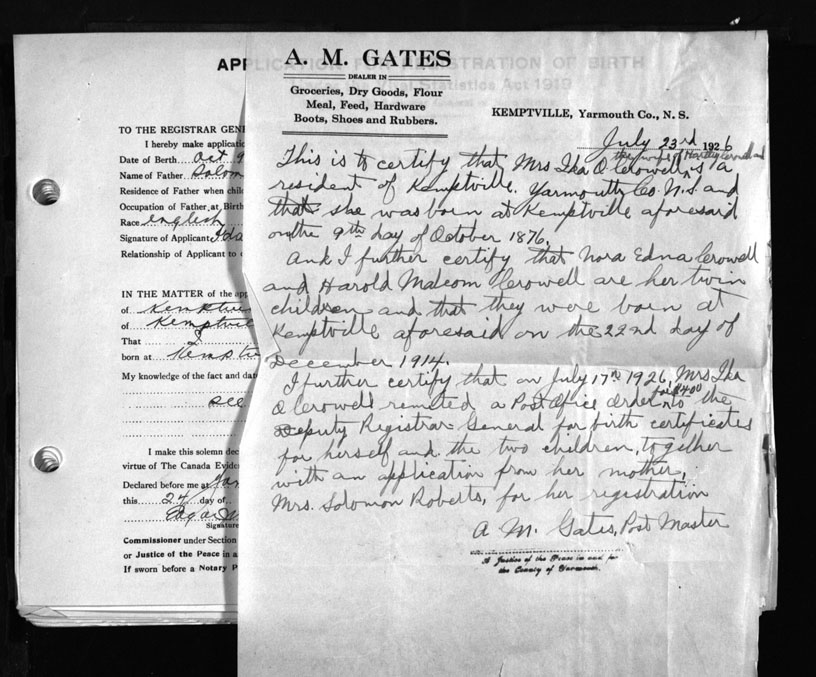 APPLICATION FOR REGISTRATION OF BIRTH
Statistics Act 1919
TO THE REGISTRAR GENE
I hereby make applicatio
Date of Birth Oct 9
Name of Father Solom
Residence of Father when chil
Occupation of Father at Birth
Race English
Signature of Applicant Ida
Relationship of Applicant to c
IN THE MATTER of the app
of Kemptvi
of Kemptvil
That I
born at Kemptvi
My knowledge of the fact and date
see
I make this solemn decl
virtue of The Canada Evide
Declared before me at
this 24 day of
Edgar
Signature
Commissioner under Section
or Justice of the Peace in a
If sworn before a Notary P
A. M. GATES
DEALER IN
Groceries, Dry Goods, Flour
Meal, Feed, Hardware
Boots, Shoes and Rubbers.
KEMPTVILLE, Yarmouth Co., N. S.
July 23rd 1926
the wife of Hartley Crowell and
This is to certify that Mrs Ida O Crowell is a
resident of Kemptville, Yarmouth Co. N.S. and
that she was born at Kemptville aforesaid
on the 9th day of October 1876.
And I further certify that Nora Edna Crowell
and Harold Malcom Crowell are her twin
children and that they were born at
Kemptville aforesaid on the 22nd day of
December 1914.
I further certify that on July 17th 1926, Mrs Ida
for $4.00
O Crowell remitted a Post Office Order to the
Deputy Registrar General for birth certificates
for herself and the two children, together
with an application from her mother,
Mrs. Solomon Roberts, for her registration
A M. Gates, Post Master
A Justice of the Peace in and for
the County of Yarmouth.